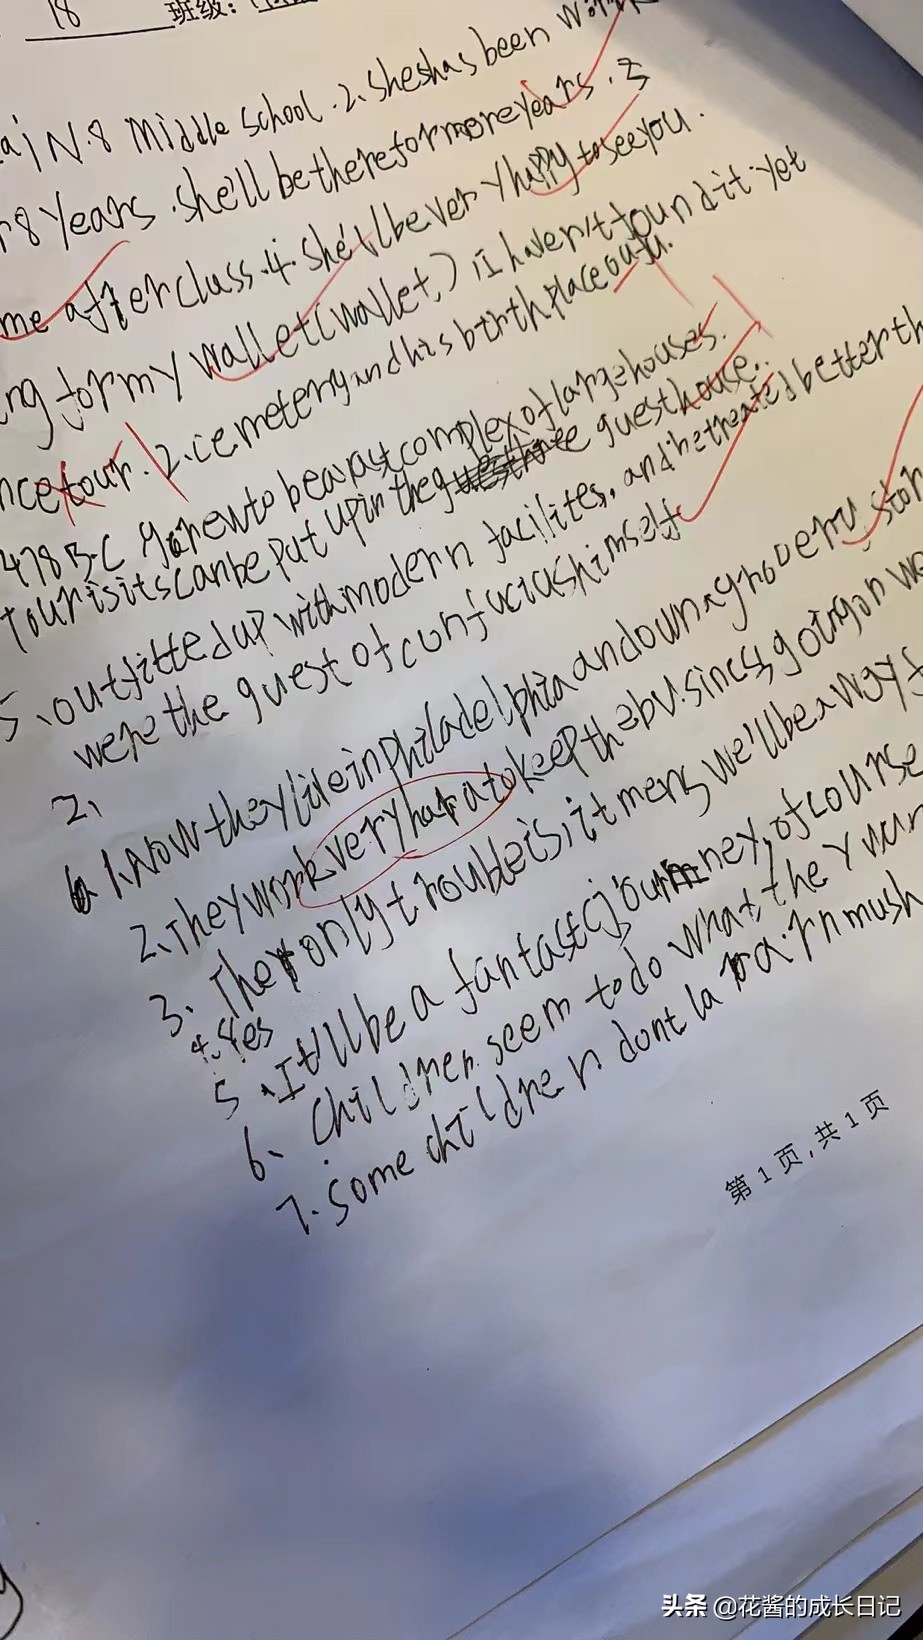 18 班级:
N.8 Middle School.2. Sheshas been
8 years. she'll be there for more years. 3
me after class. 4. She'll be very happy to see you.
ng for my wallet(wallet,) ii haven't found it yet
nce tour. 2. cemetery and his birth place
478 B.C to be a vast complex of large houses.
Tourisits can be put up in the guesthouse.
5. outfitted up with modern facilites, and be treated better th
were the guest of confucius himself
2.
6. 1. Now they live in philadelphia and own a grocery stor
2. They work very hard to keep the business going on we
3. The only trouble is, it mens we'll be away f
4. Yes
5. It'll be a fantastic journey, of course
6. Children seem to do what they
7. some children dont mush
第 1 页, 共 1 页
头条 @花酱的成长日记